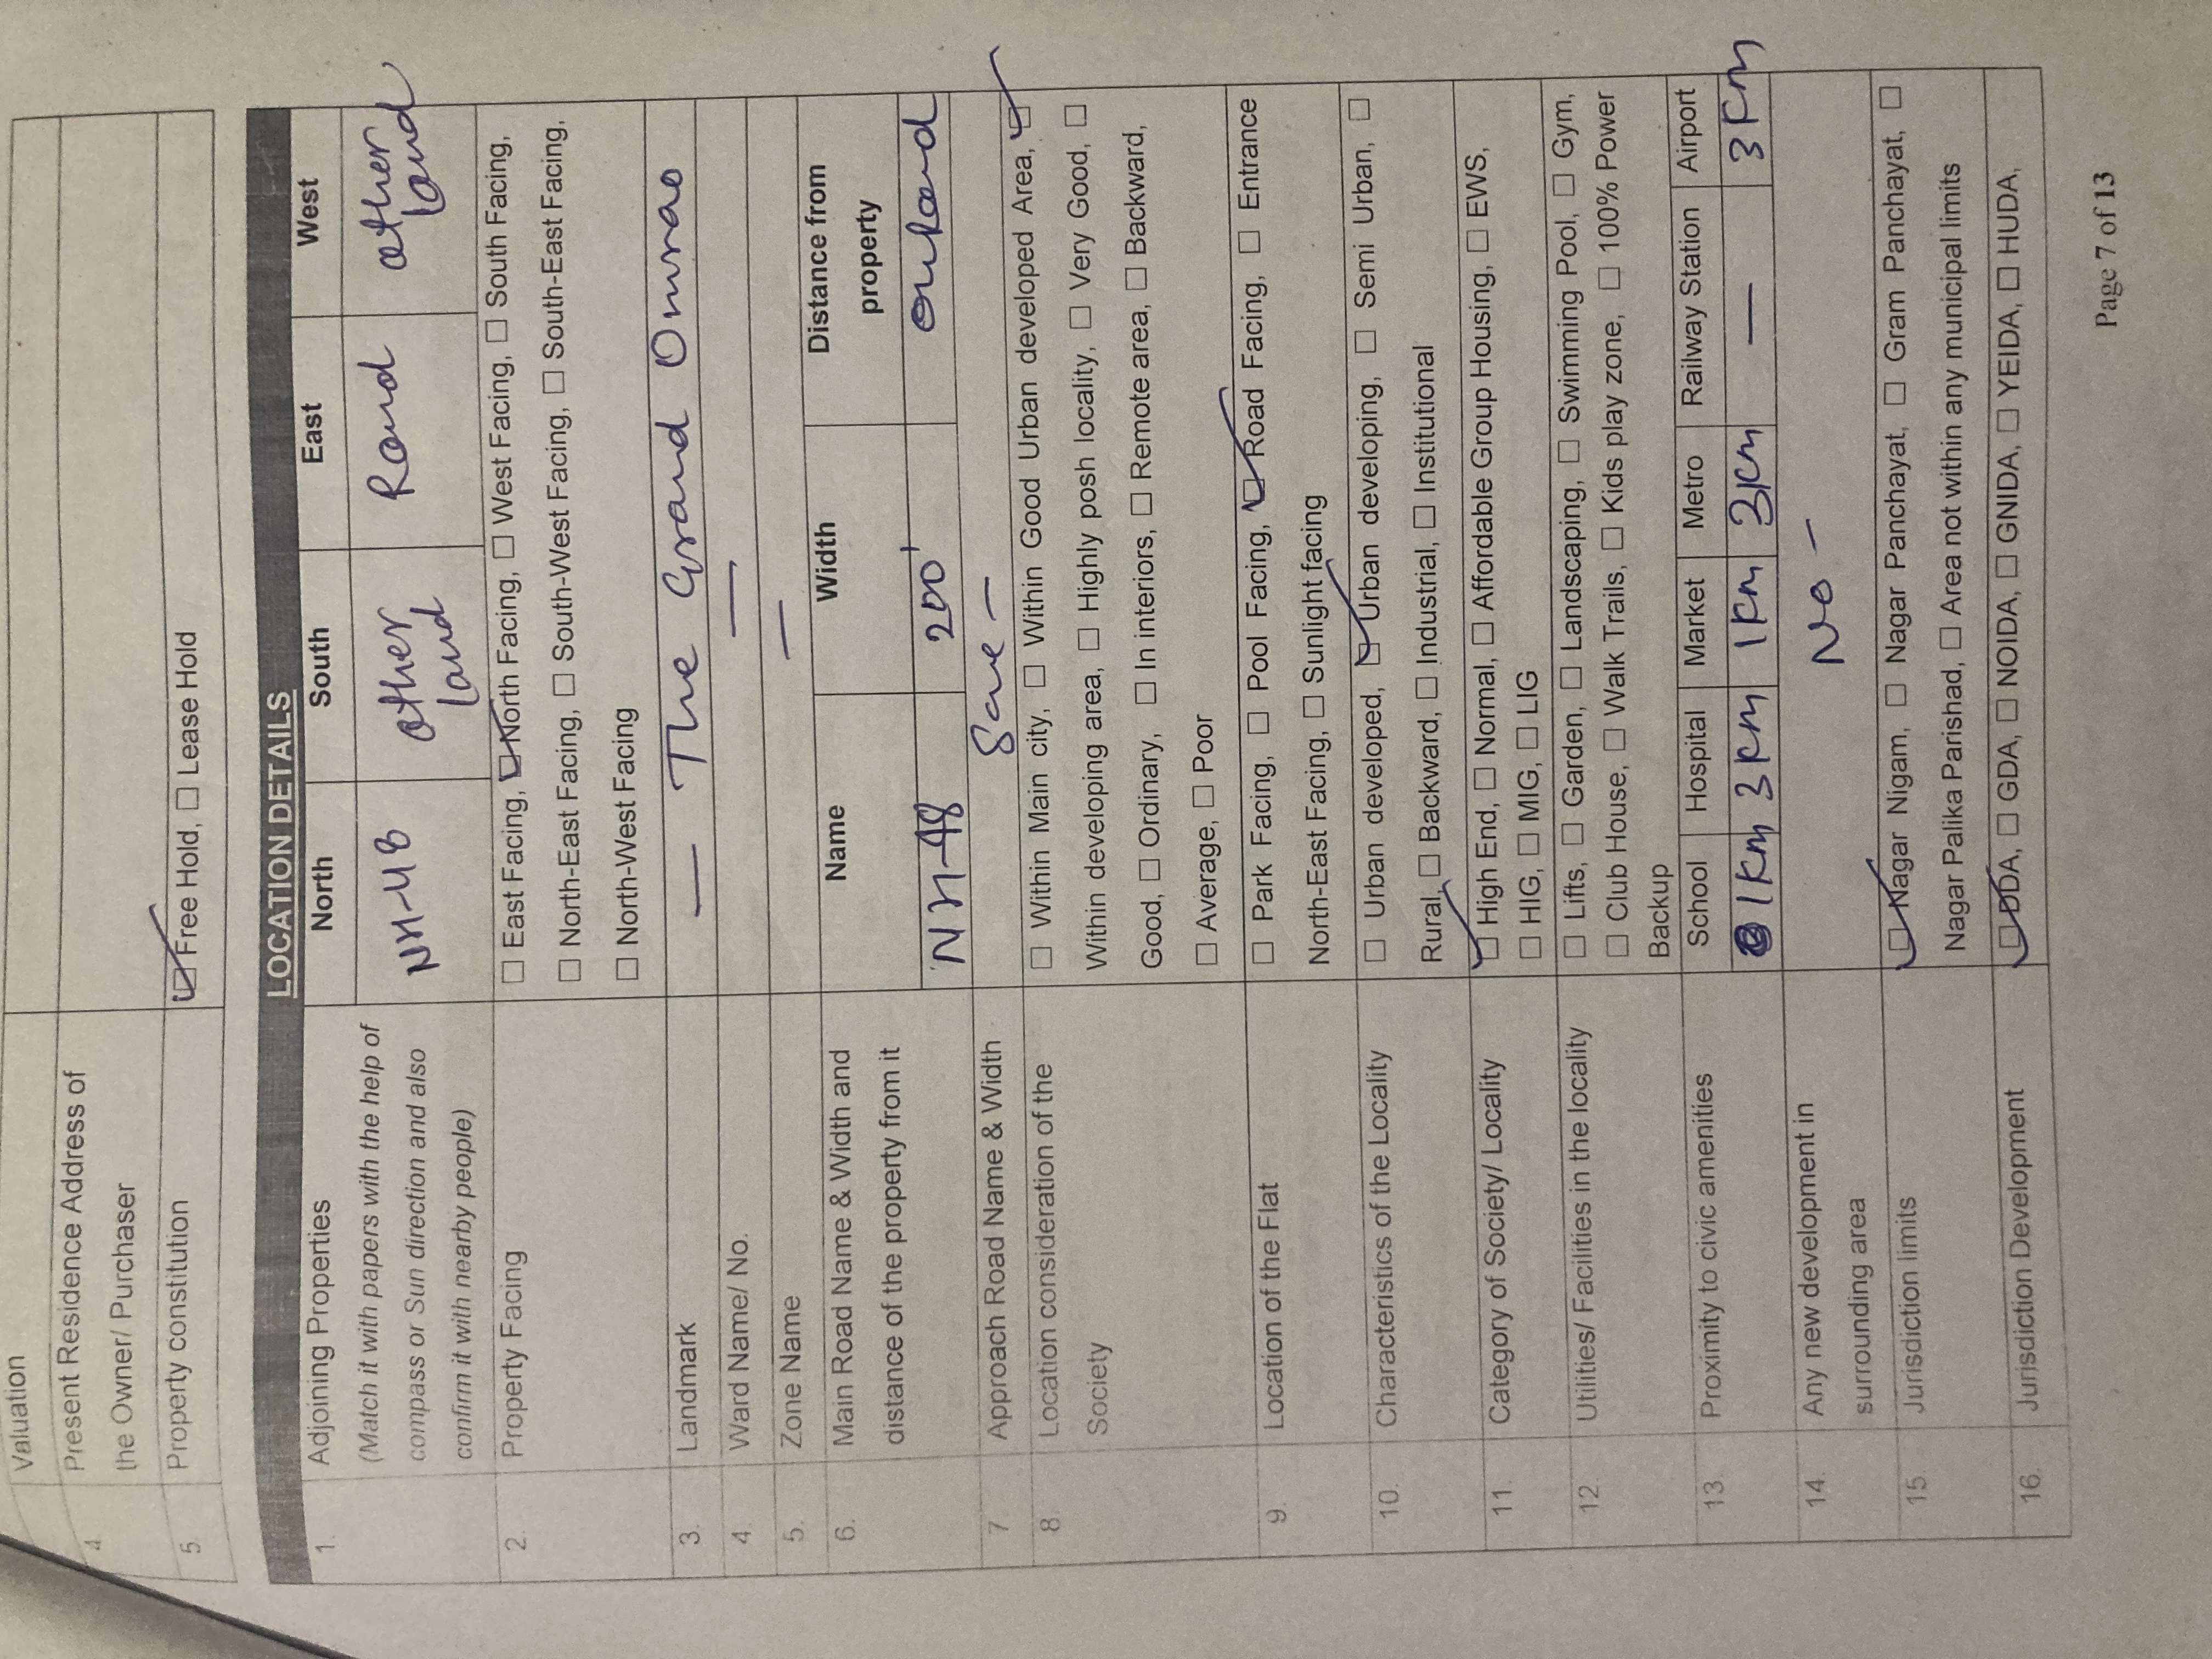 Valuation
4. Present Residence Address of
the Owner/ Purchaser
5. Property constitution ☑ Free Hold, ☐ Lease Hold
LOCATION DETAILS
1. Adjoining Properties North South East West
(Match it with papers with the help of
compass or Sun direction and also
confirm it with nearby people)
NH-48 other land Road other land
2. Property Facing ☐ East Facing, ☑ North Facing, ☐ West Facing, ☐ South Facing,
☐ North-East Facing, ☐ South-West Facing, ☐ South-East Facing,
☐ North-West Facing
3. Landmark — The Grand Omrao
4. Ward Name/ No. —
5. Zone Name —
6. Main Road Name & Width and
distance of the property from it
Name Width Distance from
property
NH-48 200' onRoad
7 Approach Road Name & Width Same -
8. Location consideration of the
Society
☐ Within Main city, ☐ Within Good Urban developed Area, ☑
Within developing area, ☐ Highly posh locality, ☐ Very Good, ☐
Good, ☐ Ordinary, ☐ In interiors, ☐ Remote area, ☐ Backward,
☐ Average, ☐ Poor
9 Location of the Flat ☐ Park Facing, ☐ Pool Facing, ☑ Road Facing, ☐ Entrance
North-East Facing, ☐ Sunlight facing
10. Characteristics of the Locality ☐ Urban developed, ☑ Urban developing, ☐ Semi Urban, ☐
Rural, ☐ Backward, ☐ Industrial, ☐ Institutional
11. Category of Society/ Locality ☑ High End, ☐ Normal, ☐ Affordable Group Housing, ☐ EWS,
☐ HIG, ☐ MIG, ☐ LIG
12. Utilities/ Facilities in the locality ☐ Lifts, ☐ Garden, ☐ Landscaping, ☐ Swimming Pool, ☐ Gym,
☐ Club House, ☐ Walk Trails, ☐ Kids play zone, ☐ 100% Power
Backup
13. Proximity to civic amenities School Hospital Market Metro Railway Station Airport
1Km 3Km 1Km 3Km — 3Km
14. Any new development in
surrounding area
No -
15 Jurisdiction limits ☑ Nagar Nigam, ☐ Nagar Panchayat, ☐ Gram Panchayat, ☐
Nagar Palika Parishad, ☐ Area not within any municipal limits
16. Jurisdiction Development ☑ DDA, ☐ GDA, ☐ NOIDA, ☐ GNIDA, ☐ YEIDA, ☐ HUDA,
Page 7 of 13